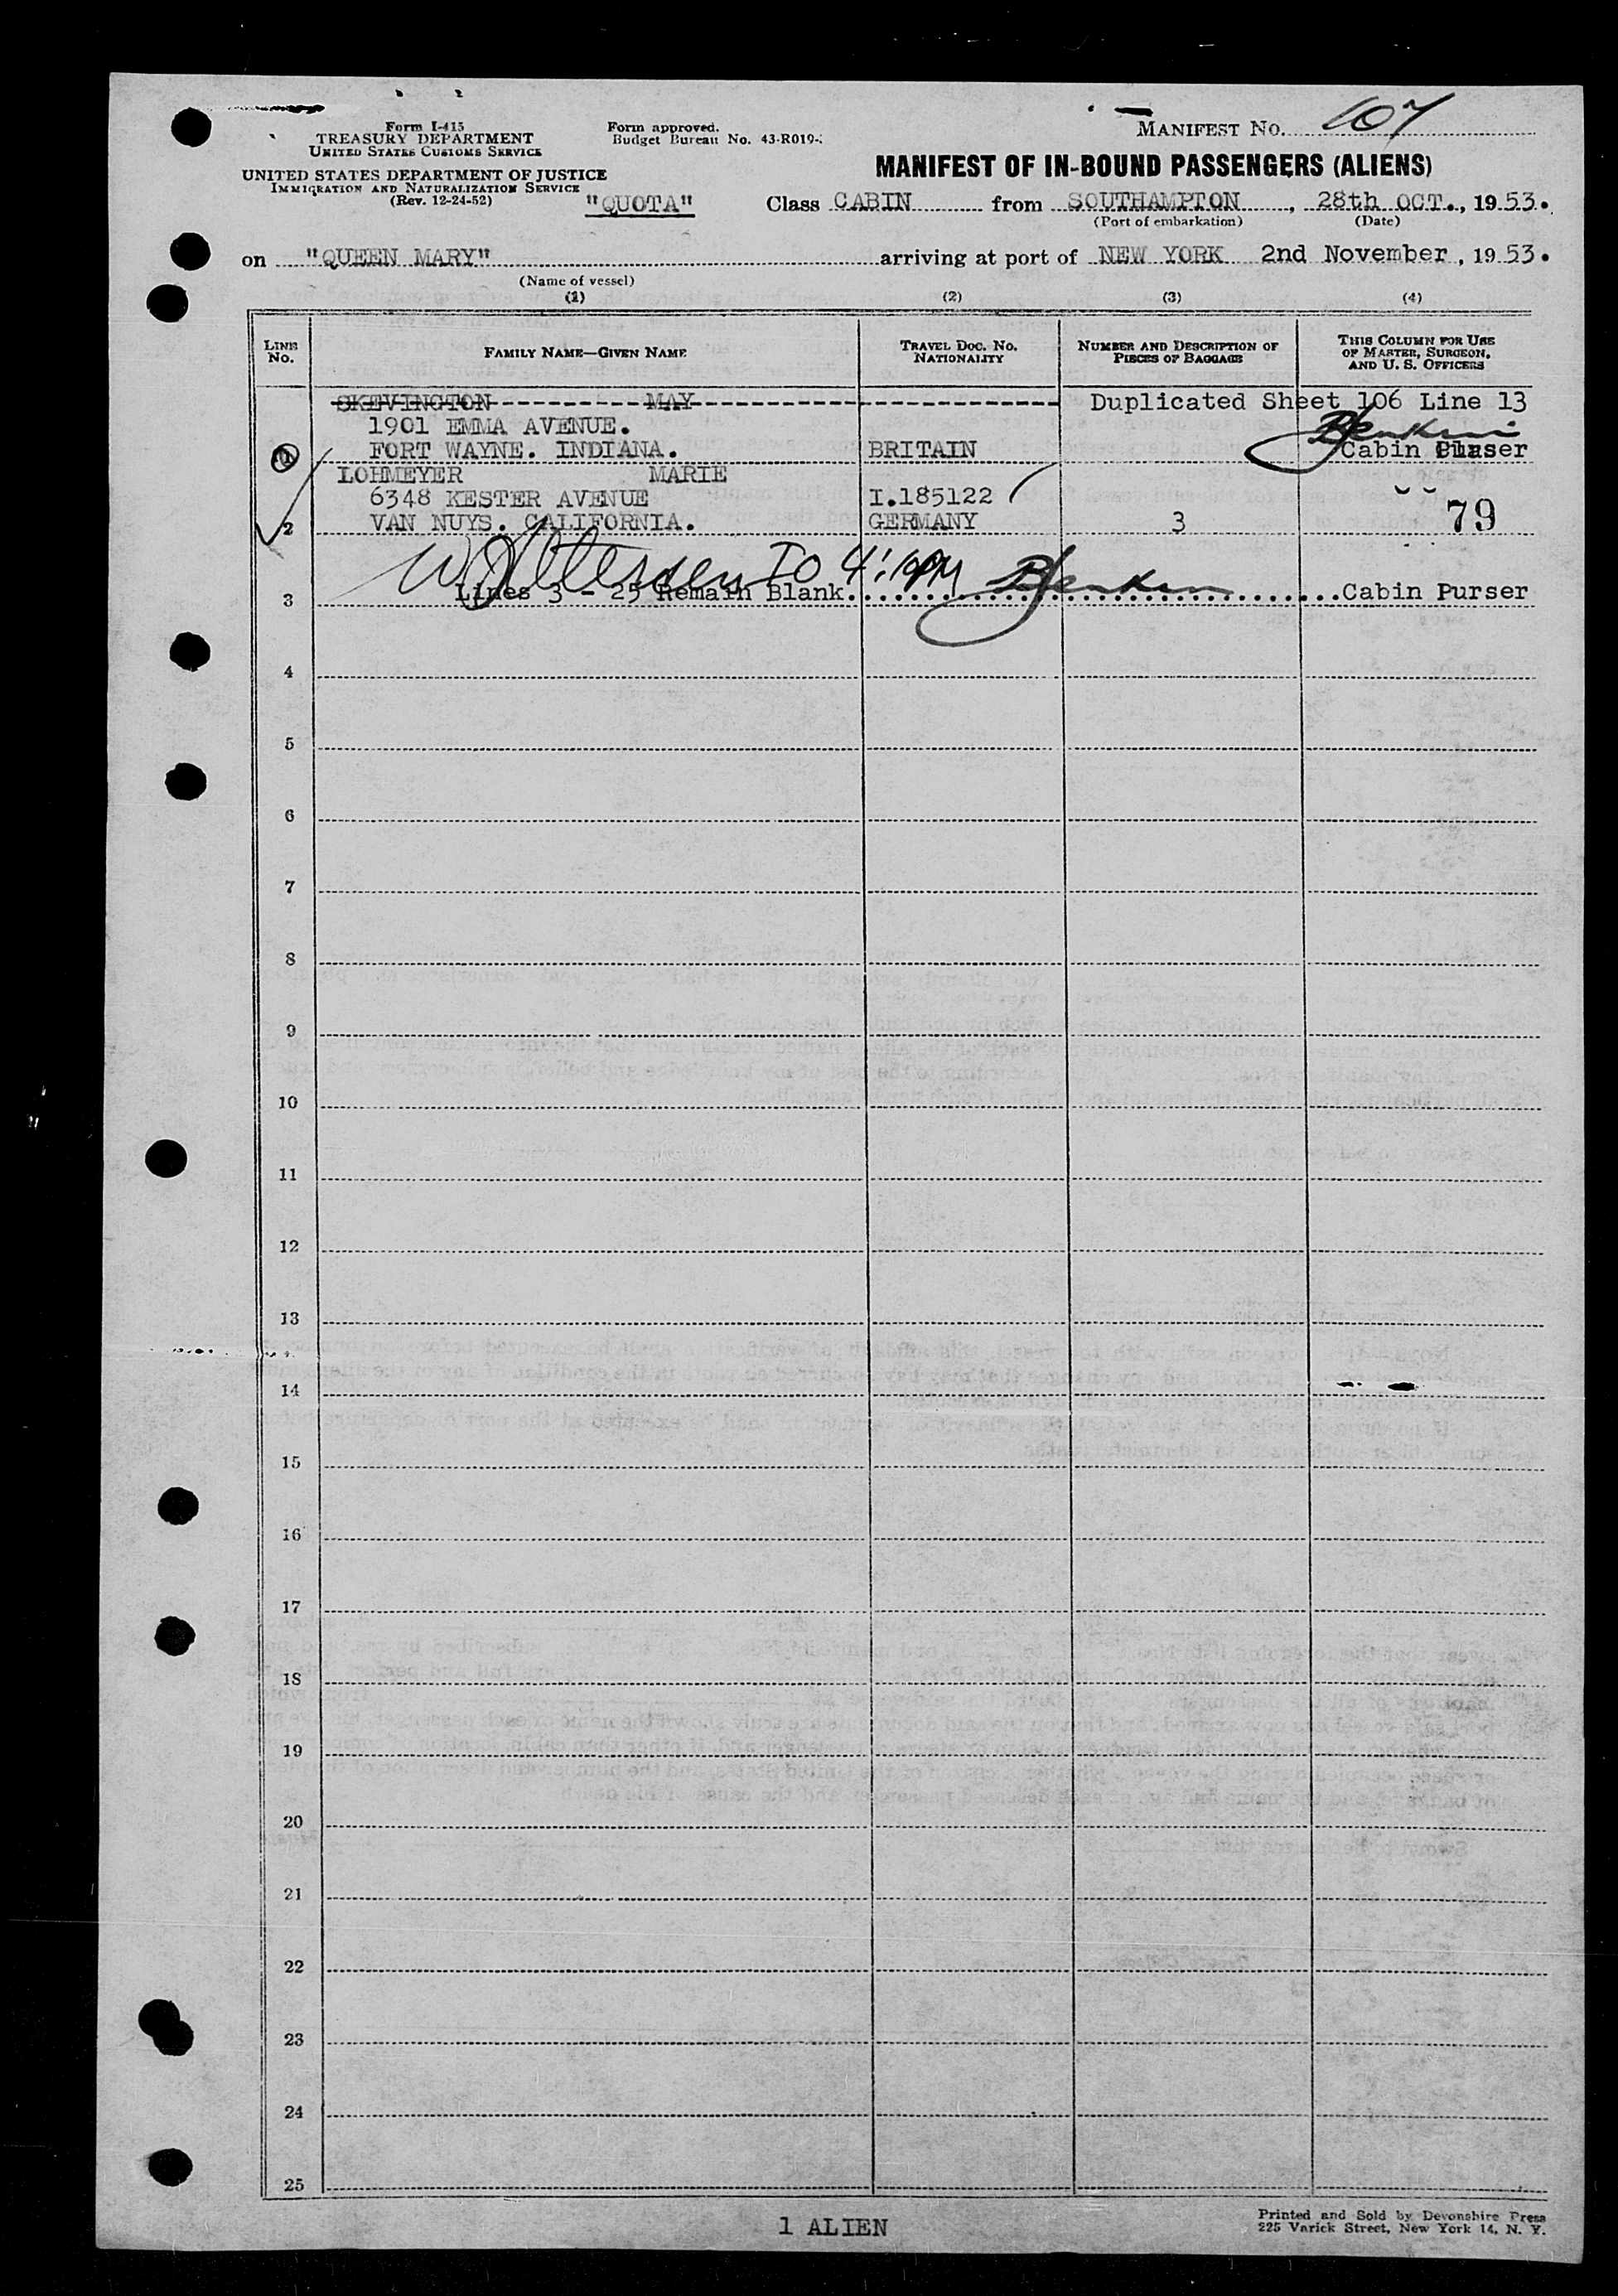 Form I-415
TREASURY DEPARTMENT
UNITED STATES CUSTOMS SERVICE
UNITED STATES DEPARTMENT OF JUSTICE
IMMIGRATION AND NATURALIZATION SERVICE
(Rev. 12-24-52)
Form approved.
Budget Bureau No. 43-R019-
MANIFEST NO. 107
MANIFEST OF IN-BOUND PASSENGERS (ALIENS)
"QUOTA" Class CABIN from SOUTHAMPTON, 28th OCT., 1953.
(Port of embarkation) (Date)
on "QUEEN MARY" arriving at port of NEW YORK 2nd November, 1953.
(Name of vessel)
(1) (2) (3) (4)
LINE NO. FAMILY NAME—GIVEN NAME TRAVEL DOC. NO. NATIONALITY NUMBER AND DESCRIPTION OF PIECES OF BAGGAGE THIS COLUMN FOR USE OF MASTER, SURGEON, AND U. S. OFFICERS
SKEVINGTON MAY Duplicated Sheet 106 Line 13
1901 EMMA AVENUE.
1 FORT WAYNE. INDIANA. BRITAIN Cabin Purser
LOHMEYER MARIE
6348 KESTER AVENUE I.185122
2 VAN NUYS. CALIFORNIA. GERMANY 3 79
IO 4:10PM
3 Lines 3 - 25 Remain Blank. Cabin Purser
4
5
6
7
8
9
10
11
12
13
14
15
16
17
18
19
20
21
22
23
24
25
1 ALIEN
Printed and Sold by Devonshire Press
225 Varick Street, New York 14, N. Y.